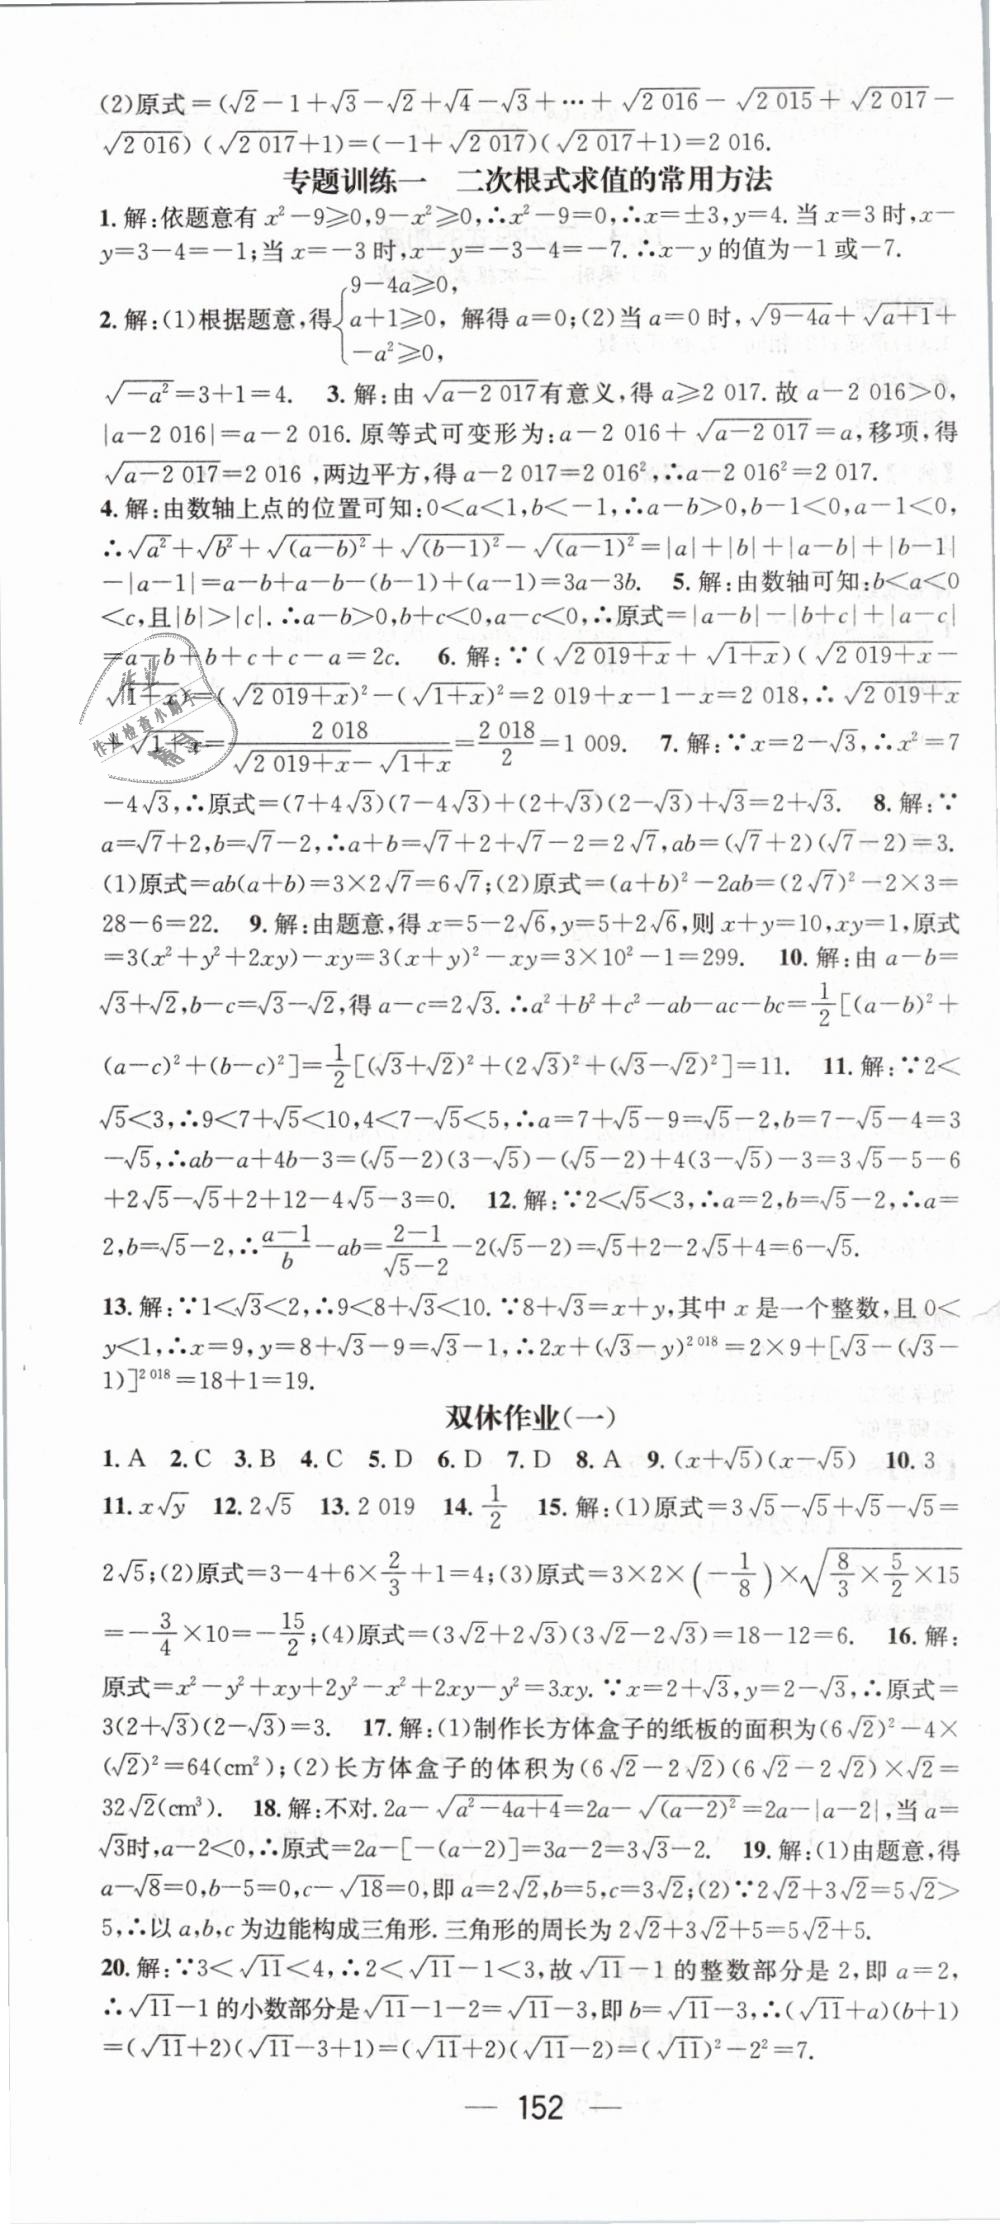 (2)原式=(√2-1+√3-√2+√4-√3+…+√2 016-√2 015+√2 017-
√2 016)(√2 017+1)=(-1+√2 017)(√2 017+1)=2 016.
专题训练一 二次根式求值的常用方法
1.解:依题意有 x²-9≥0,9-x²≥0,∴x²-9=0,∴x=±3,y=4.当 x=3 时,x-
y=3-4=-1;当 x=-3 时,x-y=-3-4=-7.∴x-y 的值为-1 或-7.
9-4a≥0,
2.解:(1)根据题意,得{a+1≥0, 解得 a=0;(2)当 a=0 时,√9-4a+√a+1+
-a²≥0,
√-a²=3+1=4. 3.解:由√a-2 017有意义,得 a≥2 017.故 a-2 016>0,
|a-2 016|=a-2 016.原等式可变形为:a-2 016+√a-2 017=a,移项,得
√a-2 017=2 016,两边平方,得 a-2 017=2 016²,∴a-2 016²=2 017.
4.解:由数轴上点的位置可知:0<a<1,b<-1,∴a-b>0,b-1<0,a-1<0,
∴√a²+√b²+√(a-b)²+√(b-1)²-√(a-1)²=|a|+|b|+|a-b|+|b-1|
-|a-1|=a-b+a-b-(b-1)+(a-1)=3a-3b. 5.解:由数轴可知:b<a<0
<c,且|b|>|c|.∴a-b>0,b+c<0,a-c<0,∴原式=|a-b|-|b+c|+|a-c|
=a-b+b+c+c-a=2c. 6.解:∵(√2 019+x+√1+x)(√2 019+x-
√1+x)=(√2 019+x)²-(√1+x)²=2 019+x-1-x=2 018,∴√2 019+x
+√1+x=2 018/(√2 019+x-√1+x)=2 018/2=1 009. 7.解:∵x=2-√3,∴x²=7
-4√3,∴原式=(7+4√3)(7-4√3)+(2+√3)(2-√3)+√3=2+√3. 8.解:∵
a=√7+2,b=√7-2,∴a+b=√7+2+√7-2=2√7,ab=(√7+2)(√7-2)=3.
(1)原式=ab(a+b)=3×2√7=6√7;(2)原式=(a+b)²-2ab=(2√7)²-2×3=
28-6=22. 9.解:由题意,得 x=5-2√6,y=5+2√6,则 x+y=10,xy=1,原式
=3(x²+y²+2xy)-xy=3(x+y)²-xy=3×10²-1=299. 10.解:由 a-b=
√3+√2,b-c=√3-√2,得 a-c=2√3.∴a²+b²+c²-ab-ac-bc=1/2[(a-b)²+
(a-c)²+(b-c)²]=1/2[(√3+√2)²+(2√3)²+(√3-√2)²]=11. 11.解:∵2<
√5<3,∴9<7+√5<10,4<7-√5<5,∴a=7+√5-9=√5-2,b=7-√5-4=3
-√5,∴ab-a+4b-3=(√5-2)(3-√5)-(√5-2)+4(3-√5)-3=3√5-5-6
+2√5-√5+2+12-4√5-3=0. 12.解:∵2<√5<3,∴a=2,b=√5-2,∴a=
2,b=√5-2,∴(a-1)/b-ab=(2-1)/(√5-2)-2(√5-2)=√5+2-2√5+4=6-√5.
13.解:∵1<√3<2,∴9<8+√3<10.∵8+√3=x+y,其中 x 是一个整数,且 0<
y<1,∴x=9,y=8+√3-9=√3-1,∴2x+(√3-y)²⁰¹⁸=2×9+[√3-(√3-
1)]²⁰¹⁸=18+1=19.
双休作业(一)
1.A 2.C 3.B 4.C 5.D 6.D 7.D 8.A 9.(x+√5)(x-√5) 10.3
11.x√y 12.2√5 13.2 019 14.1/2 15.解:(1)原式=3√5-√5+√5-√5=
2√5;(2)原式=3-4+6×2/3+1=4;(3)原式=3×2×(-1/8)×√(8/3×5/2×15)
=-3/4×10=-15/2;(4)原式=(3√2+2√3)(3√2-2√3)=18-12=6. 16.解:
原式=x²-y²+xy+2y²-x²+2xy-y²=3xy.∵x=2+√3,y=2-√3,∴原式=
3(2+√3)(2-√3)=3. 17.解:(1)制作长方体盒子的纸板的面积为(6√2)²-4×
(√2)²=64(cm²);(2)长方体盒子的体积为(6√2-2√2)(6√2-2√2)×√2=
32√2(cm³). 18.解:不对.2a-√a²-4a+4=2a-√(a-2)²=2a-|a-2|,当 a=
√3时,a-2<0,∴原式=2a-[-(a-2)]=3a-2=3√3-2. 19.解:(1)由题意,得
a-√8=0,b-5=0,c-√18=0,即 a=2√2,b=5,c=3√2;(2)∵2√2+3√2=5√2>
5,∴以 a,b,c 为边能构成三角形.三角形的周长为 2√2+3√2+5=5√2+5.
20.解:∵3<√11<4,∴2<√11-1<3,故√11-1 的整数部分是 2,即 a=2,
∴√11-1 的小数部分是√11-1-2=√11-3,即 b=√11-3,∴(√11+a)(b+1)
=(√11+2)(√11-3+1)=(√11+2)(√11-2)=(√11)²-2²=7.
— 152 —
作业
作业检查小助手